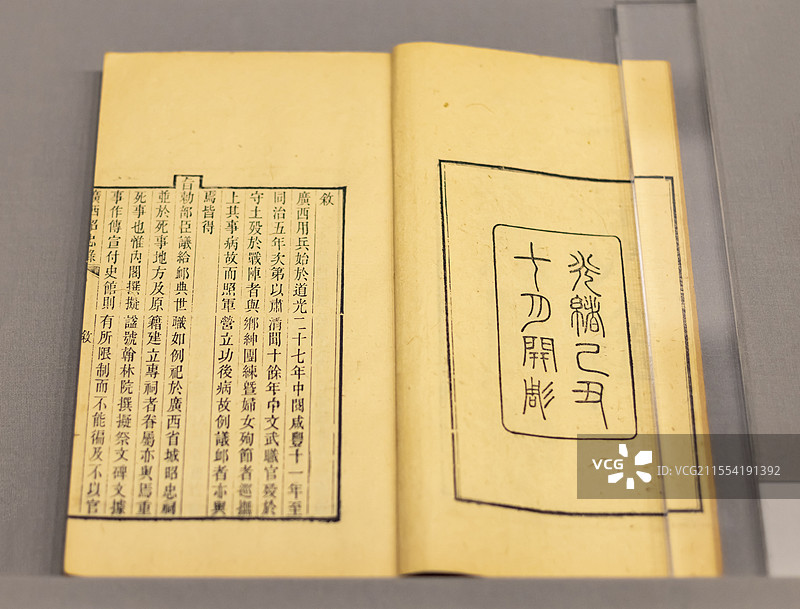 光緒己丑
十月開彫
敘
廣西用兵始於道光二十七年中閱咸豐十一年至
同治五年次第以肅清閒十餘年中文武職官歿於
守土歿於戰陣者與鄉紳團練暨婦女殉節者巡撫
上其事病故而照軍營立功後病故例議䘏者亦與
焉皆得
旨勅部臣議給䘏典世職如例祀於廣西省城昭忠祠
並於死事地方及原籍建立專祠者眷屬亦與焉重
死事也惟內閣撰擬諡號翰林院撰擬祭文碑文據
事作傳宣付史館則有所限制而不能徧及不以官
廣西昭忠錄
敘
VCG
ID:VCG211554191392